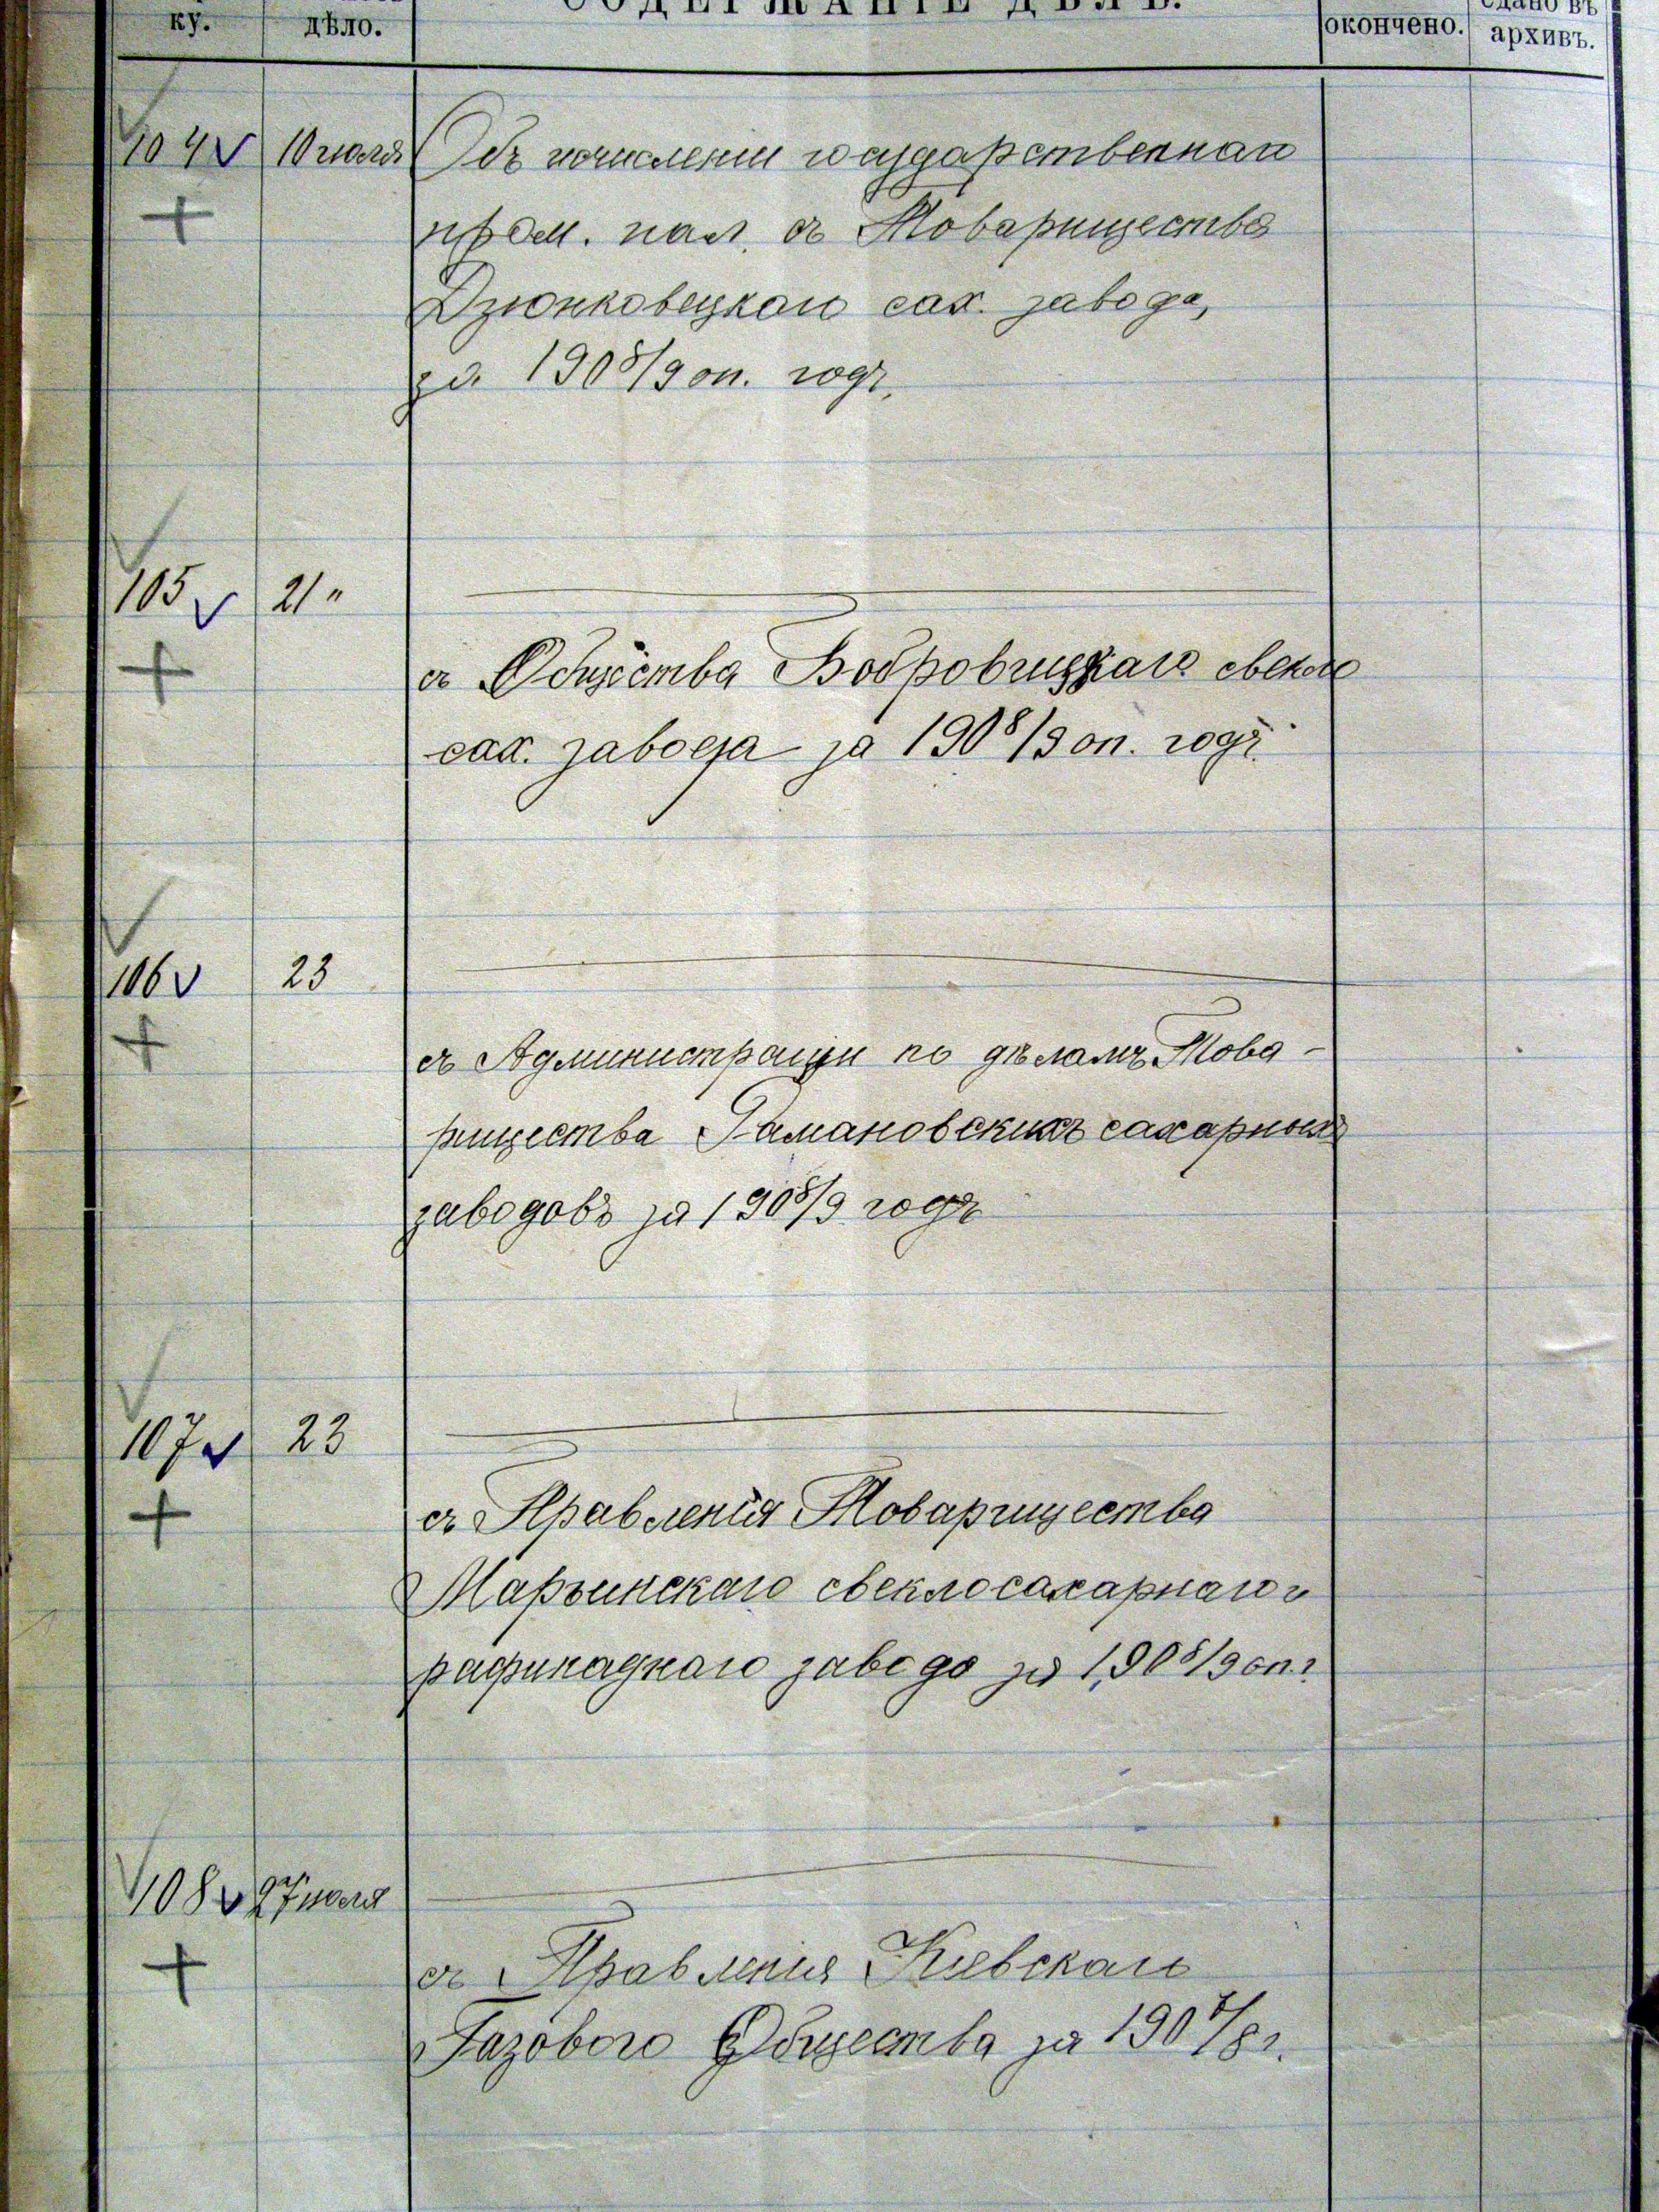 СОДЕРЖАНІЕ ДѢЛЪ.
сдано въ
ку.
дѣло.
окончено.
архивъ.
104 10 июля Объ исчисленіи государственнаго
пром. нал. съ Товарищества
Дзюнковецкаго сах. завода,
за 1908/9 оп. годъ.
105 21 "
съ Общества Бобровицкаго свекло
сах. завода за 1908/9 оп. годъ.
106 23
съ Администраціи по дѣламъ Това-
рищества Романовскихъ сахарныхъ
заводовъ за 1908/9 годъ
107 23
съ Правленія Товарищества
Марьинскаго свеклосахарнаго и
рафинаднаго завода за 1908/9 оп. г.
108 27 июля
съ Правленія Кіевскаго
Газового Общества за 1907/8 г.